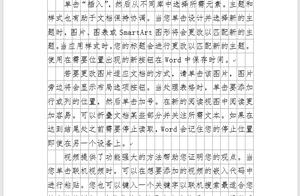 单击“插入”，然后从不同库中选择所需元素。主题和
样式也有助于文档保持协调。当您单击设计并选择新的主
题时，图片、图表或SmartArt图形将会更改以匹配新的主
题。当应用样式时，您的标题会进行更改以匹配新的主题。
使用在需要位置出现的新按钮在Word中保存时间。
若要更改图片适应文档的方式，请单击该图片，图片
旁边将会显示布局选项按钮。当处理表格时，单击要添加
行或列的位置，然后单击加号。在新的阅读视图中阅读更
加容易。可以折叠文档某些部分并关注所需文本。如果在
达到结尾处之前需要停止读取，Word会记住您的停止位置
即使在另一个设备上。
视频提供了功能强大的方法帮助您证明您的观点。当
您单击联机视频时，可以在想要添加的视频的嵌入代码中
进行粘贴。您也可以键入一个关键字以联机搜索最适合您